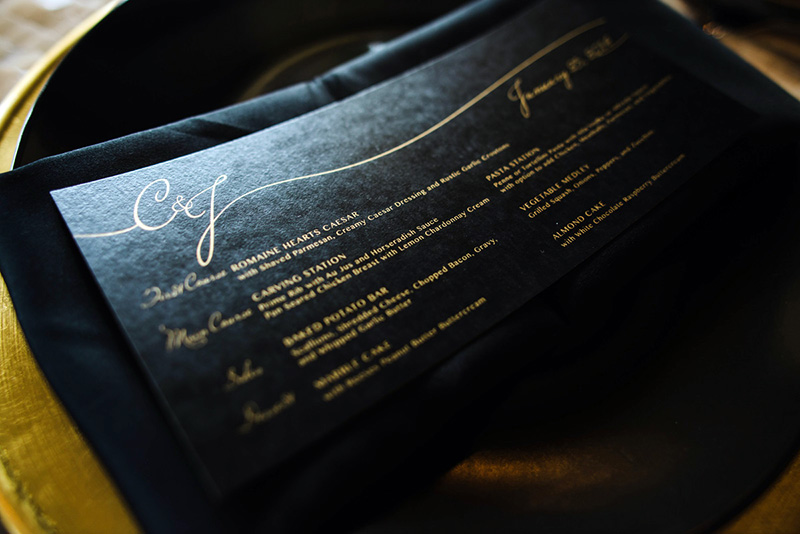 C&J
January
First Course
ROMAINE HEARTS CAESAR
with Shaved Parmesan, Creamy Caesar Dressing and Rustic Garlic Croutons
Main Course
CARVING STATION
Prime Rib with Au Jus and Horseradish Sauce
Pan Seared Chicken Breast with Lemon Chardonnay Cream
PASTA STATION
Penne or Tortellini Pasta with
with option to add Chicken, Meatballs,
Sides
BAKED POTATO BAR
Scallions, Shredded Cheese, Chopped Bacon, Gravy,
and Whipped Garlic Butter
VEGETABLE MEDLEY
Grilled Squash, Onions, Peppers, and Zucchini
Dessert
MARBLE CAKE
with Peanut Butter Buttercream
ALMOND CAKE
with White Chocolate Raspberry Buttercream